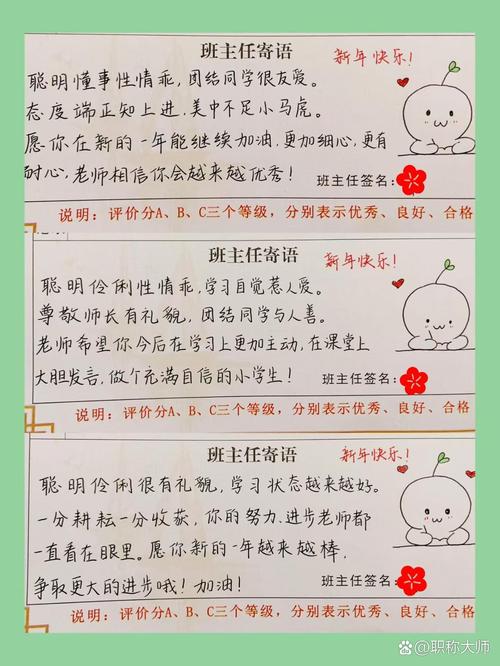 班主任寄语
新年快乐!
聪明懂事性情乖,团结同学很友爱。
态度端正知上进,美中不足小马虎。
愿你在新的一年能继续加油,更加细心,更有
耐心,老师相信你会越来越优秀!
班主任签名:
说明:评价分A、B、C三个等级,分别表示优秀、良好、合格
班主任寄语
新年快乐!
聪明伶俐性情乖,学习自觉惹人爱。
尊敬师长有礼貌,团结同学与人善。
老师希望你今后在学习上更加主动,在课堂上
大胆发言,做个充满自信的小学生!
班主任签名:
说明:评价分A、B、C三个等级,分别表示优秀、良好、合格
班主任寄语
新年快乐!
聪明伶俐很有礼貌,学习状态越来越好。
一分耕耘一分收获,你的努力、进步老师都
一直看在眼里。愿你新的一年越来越棒,
争取更大的进步哦!加油!
班主任签名:
说明:评价分A、B、C三个等级,分别表示优秀、良好、合格
@职称大师